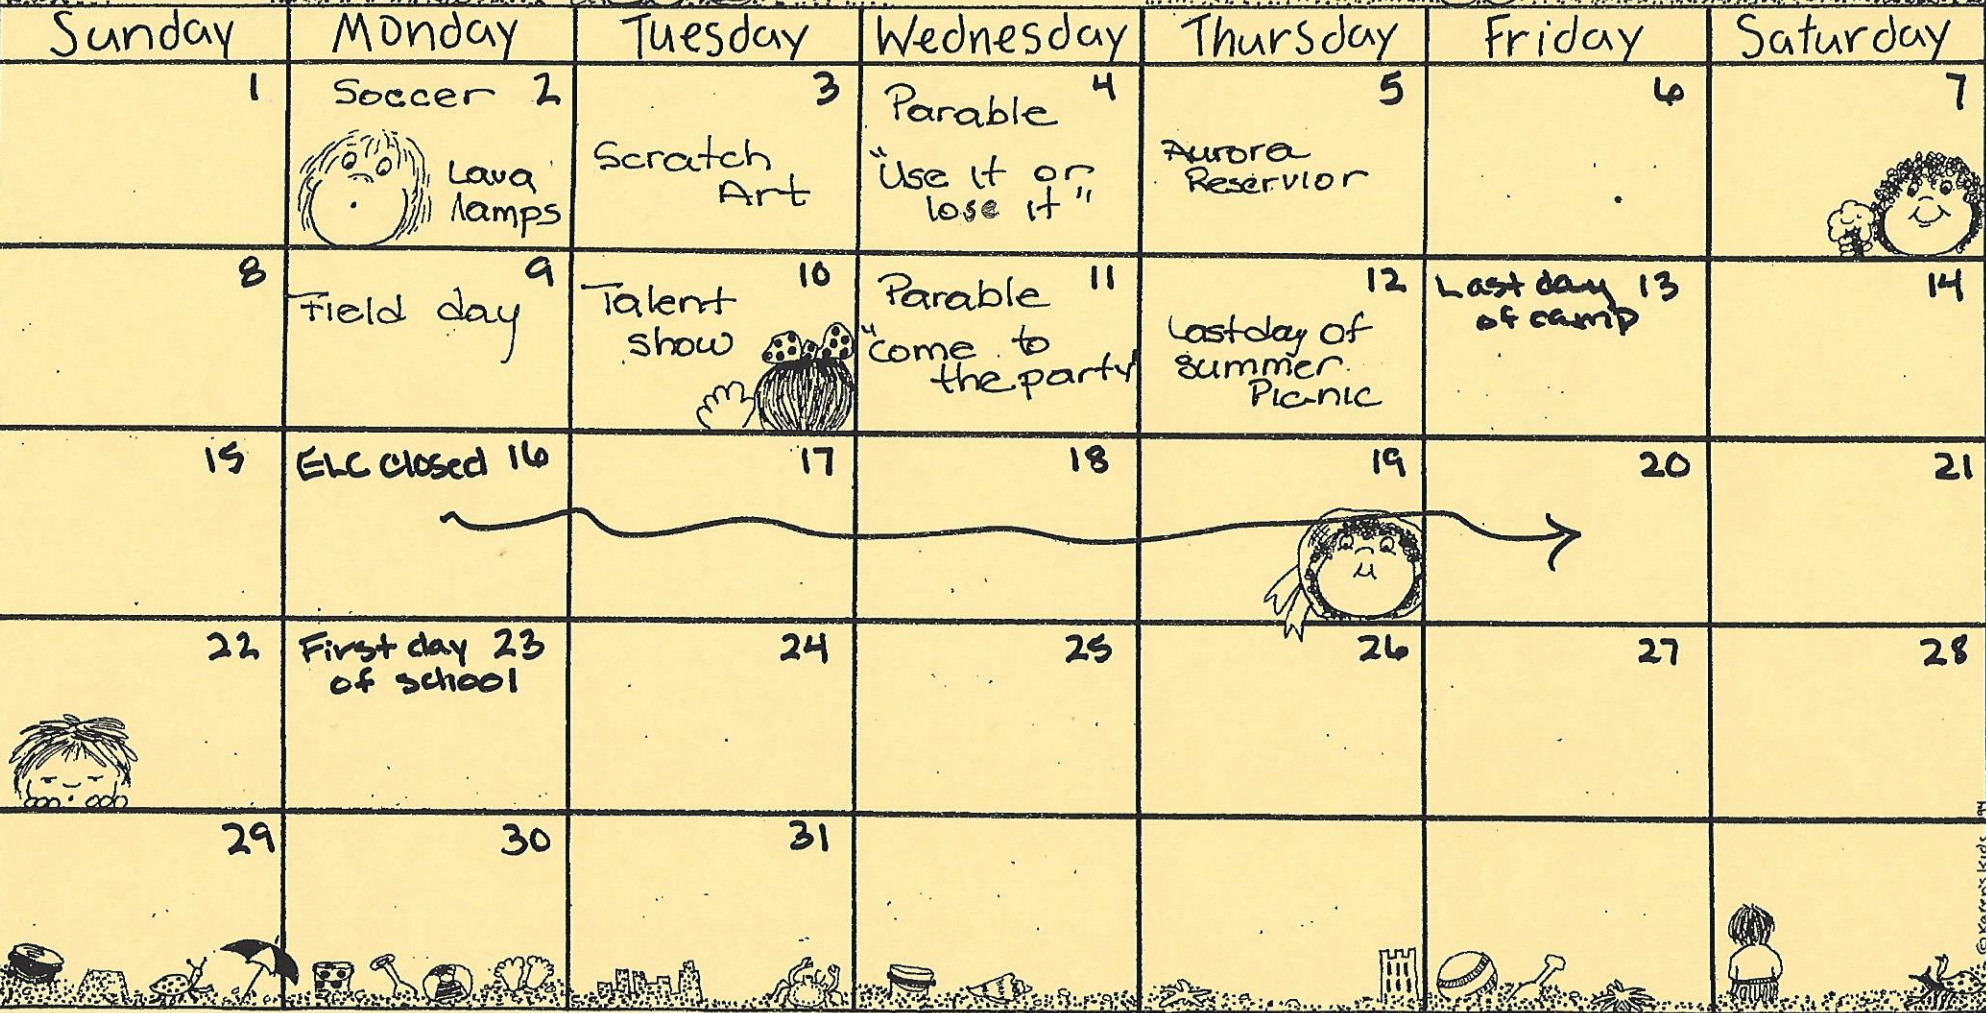 Sunday Monday Tuesday Wednesday Thursday Friday Saturday
1
Soccer 2
Lava
lamps
3
Scratch
Art
4
Parable
"Use it or
lose it"
5
Aurora
Reservior
6
7
8
9
Field day
10
Talent
show
11
Parable
"come to
the party"
12
Last day of
summer
Picnic
Last day 13
of camp
14
15
ELC closed 16
17
18
19
20
21
22
First day 23
of school
24
25
26
27
28
29
30
31
© Karen's Kids 94